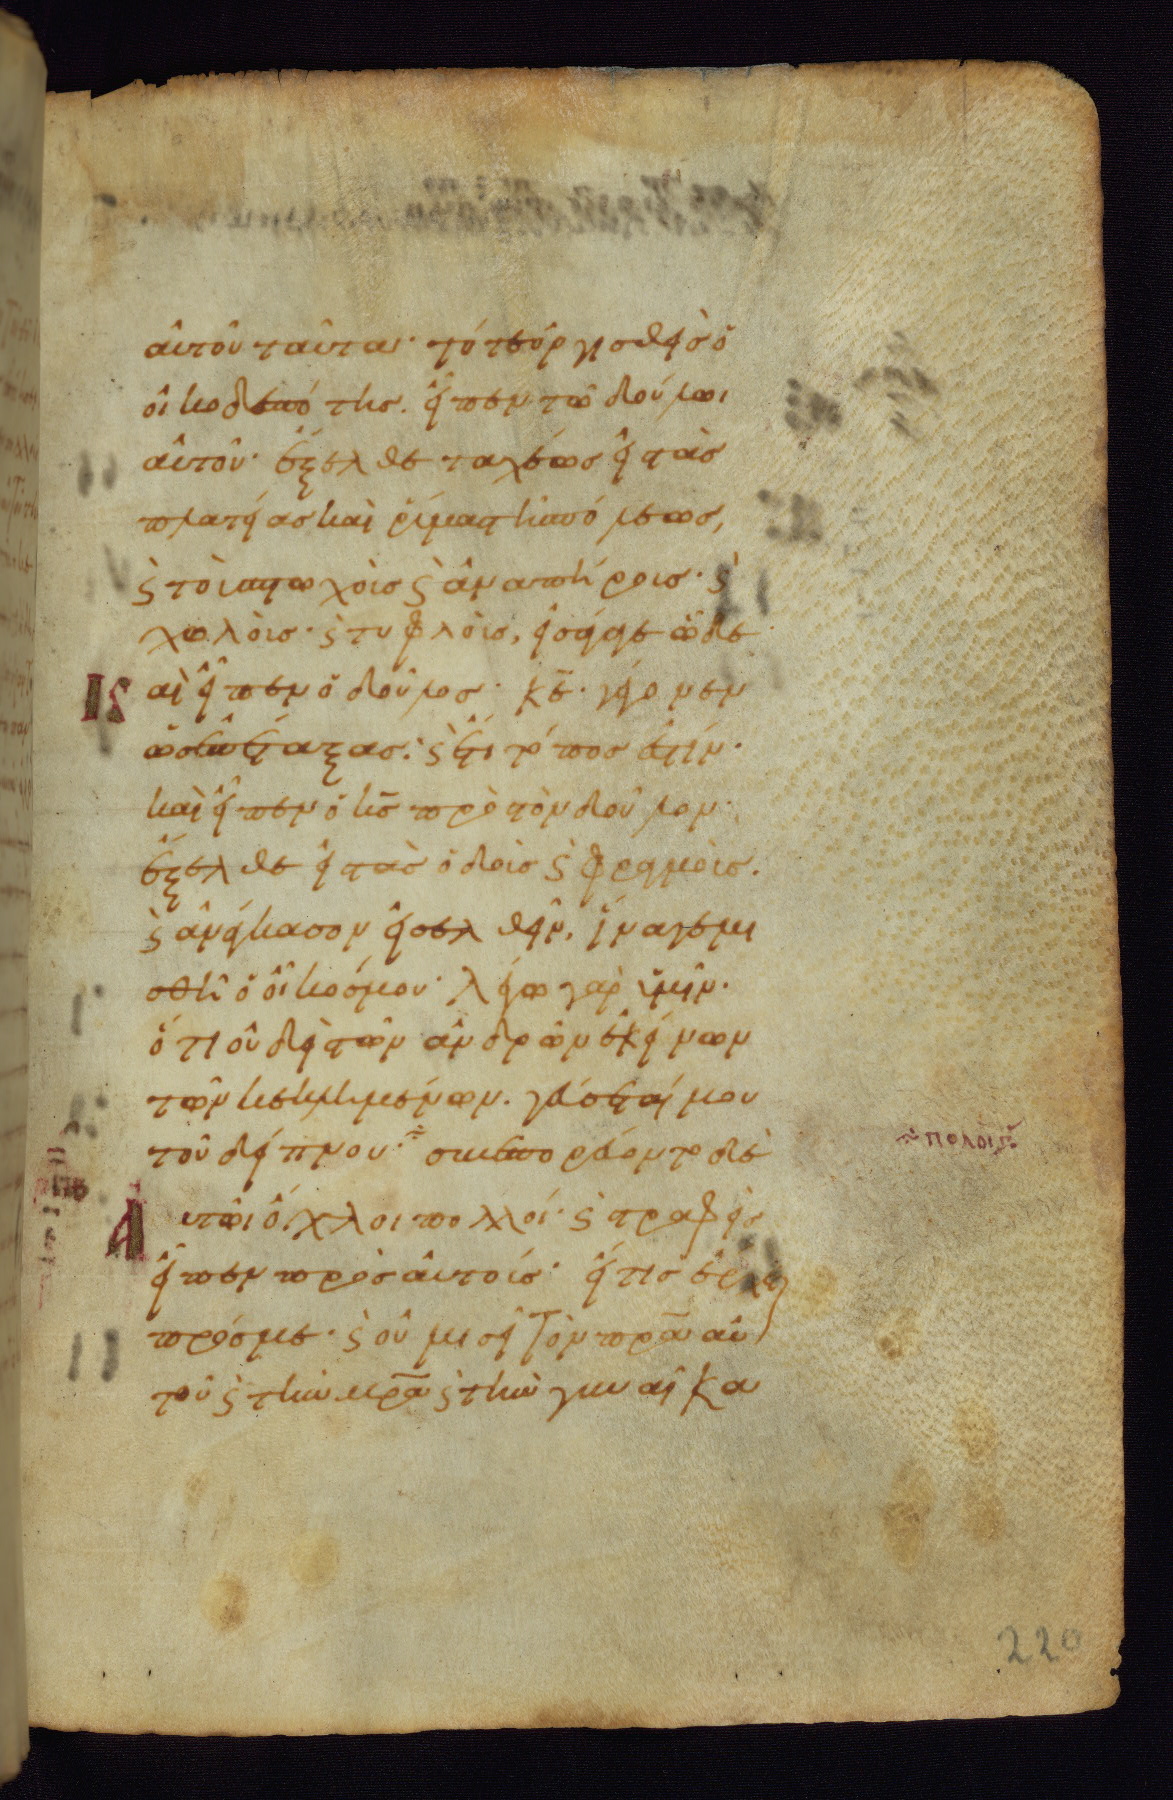 αὐτοῦ ταῦτα· τότε ὀργισθεὶς ὁ
οἰκοδεσπότης. εἶπεν τῶ δούλωι
αὐτοῦ· ἔξελθε ταχέως εἰ τὰσ
πλατείας καὶ ῥύμας τῆς πόλεως,
ϛ τοὺς πτωχοὺς ϛ ἀναπήρους· ϛ
χωλοὺς· ϛ τυφλοὺς, εἰσάγαγε ὧδε·
Καὶ εἶπεν ὁ δοῦλος· κε̄· γέγονεν
ὡς ἐπέταξας· ϛ ἔτι τόπος ἐστίν·
καὶ εἶπεν ὁ κ̄ς πρὸς τὸν δοῦλον·
ἔξελθε εἰς τὰς ὁδοὺς ϛ φραγμοὺς.
ϛ ἀνάγκασον εἰσελθεῖν, ἵνα γεμι
σθῆ ὁ οἶκός μου· λέγω γὰρ ὑμῖν·
ὅτι οὐδεὶς τῶν ἀνδρῶν ἐκείνων
τῶν κεκλημένων. γεύσεταί μου
τοῦ δείπνου· συνεπορεύοντο δὲ
Αὐτῶι ὄχλοι πολλοί· ϛ στραφεὶς
εἶπεν πρὸς αὐτούς· εἴ τις ἔρχεται
πρός με· ϛ οὐ μισεῖ τὸν πρ̄α αὐ
τοῦ ϛ τὴν μρ̄α ϛ τὴν γυναῖκα
220